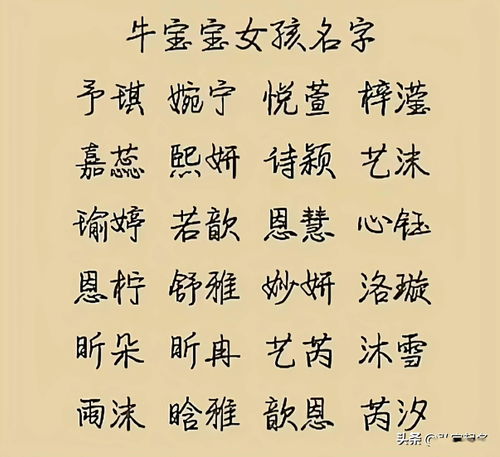 牛宝宝女孩名字
予琪 婉宁 悦萱 梓滢
嘉蕊 熙妍 诗颖 艺沫
瑜婷 若歆 恩慧 心钰
恩柠 舒雅 妙妍 洛璇
昕朵 昕冉 艺芮 沐雪
雨沫 晗雅 歆恩 芮汐
头条